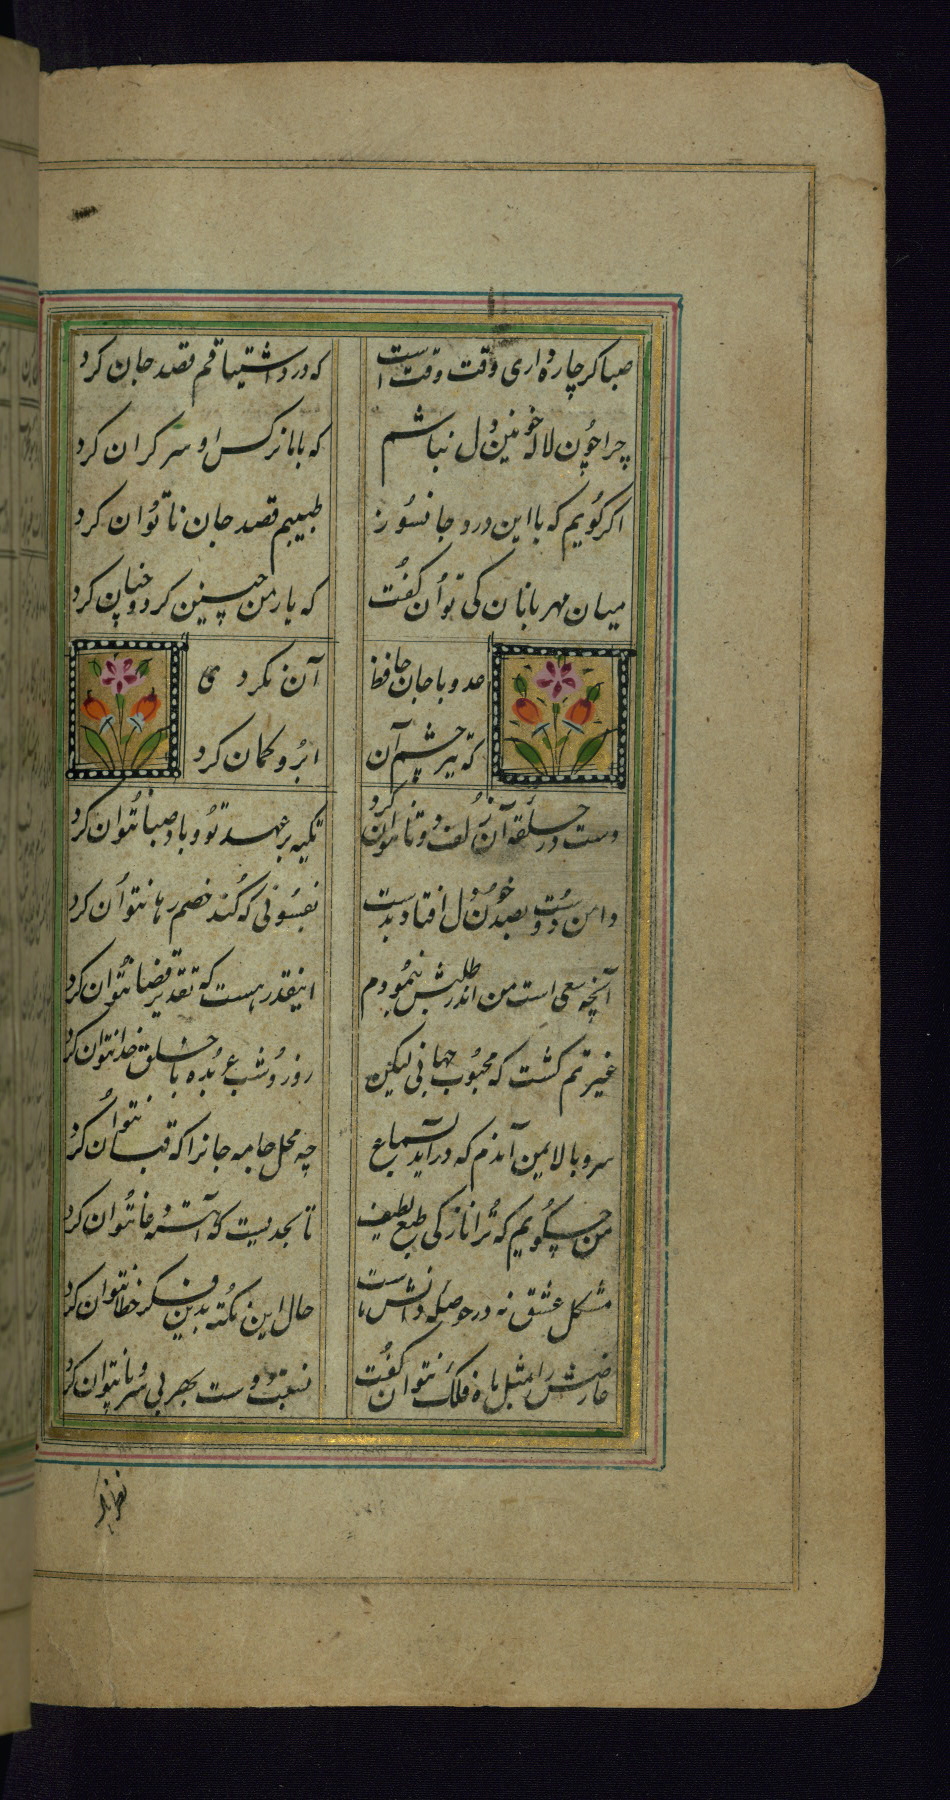 صبا کر چاره داری وقت وقت است که درد اشتیاقم قصد جان کرد
چرا چون لاله خونین دل نباشم که با ما نرکس او سر کران کرد
اکر کویم که با این درد جانسوز طبیبم قصد جان ناتوان کرد
میان مهربانان کی توان کفت که یار من چنین کرد و چنان کرد
عدو با جان حافظ آن نکرد ی
که تیر چشم آن ابرو کمان کرد
دست در حلقه آن زلف دوتا نتوان کرد تکیه بر عهد تو و باد صبا نتوان کرد
دامن دوست بصد خون دل افتاد بدست بفسونی که کند خصم رها نتوان کرد
آنچه سعی است من اندر طلبش بنمودم اینقدر هست که تقدیر قضا نتوان کرد
غیرتم کشت که محبوب جهانی لیکن روز و شب عربده با خلق خدا نتوان کرد
سرو بالای من آندم که درآید بسماع چه محل جامه جانرا که قبا نتوان کرد
من چکویم که ترا نازکی طبع لطیف تا بحدیست که آهسته دعا نتوان کرد
مشکل عشق نه در حوصله دانش ماست حال این نکته بدین فکر خطا نتوان کرد
عارضش را بمثل ماه فلک نتوان کفت نسبت دوست بهر بی سر و پا نتوان کرد
نظر پاک